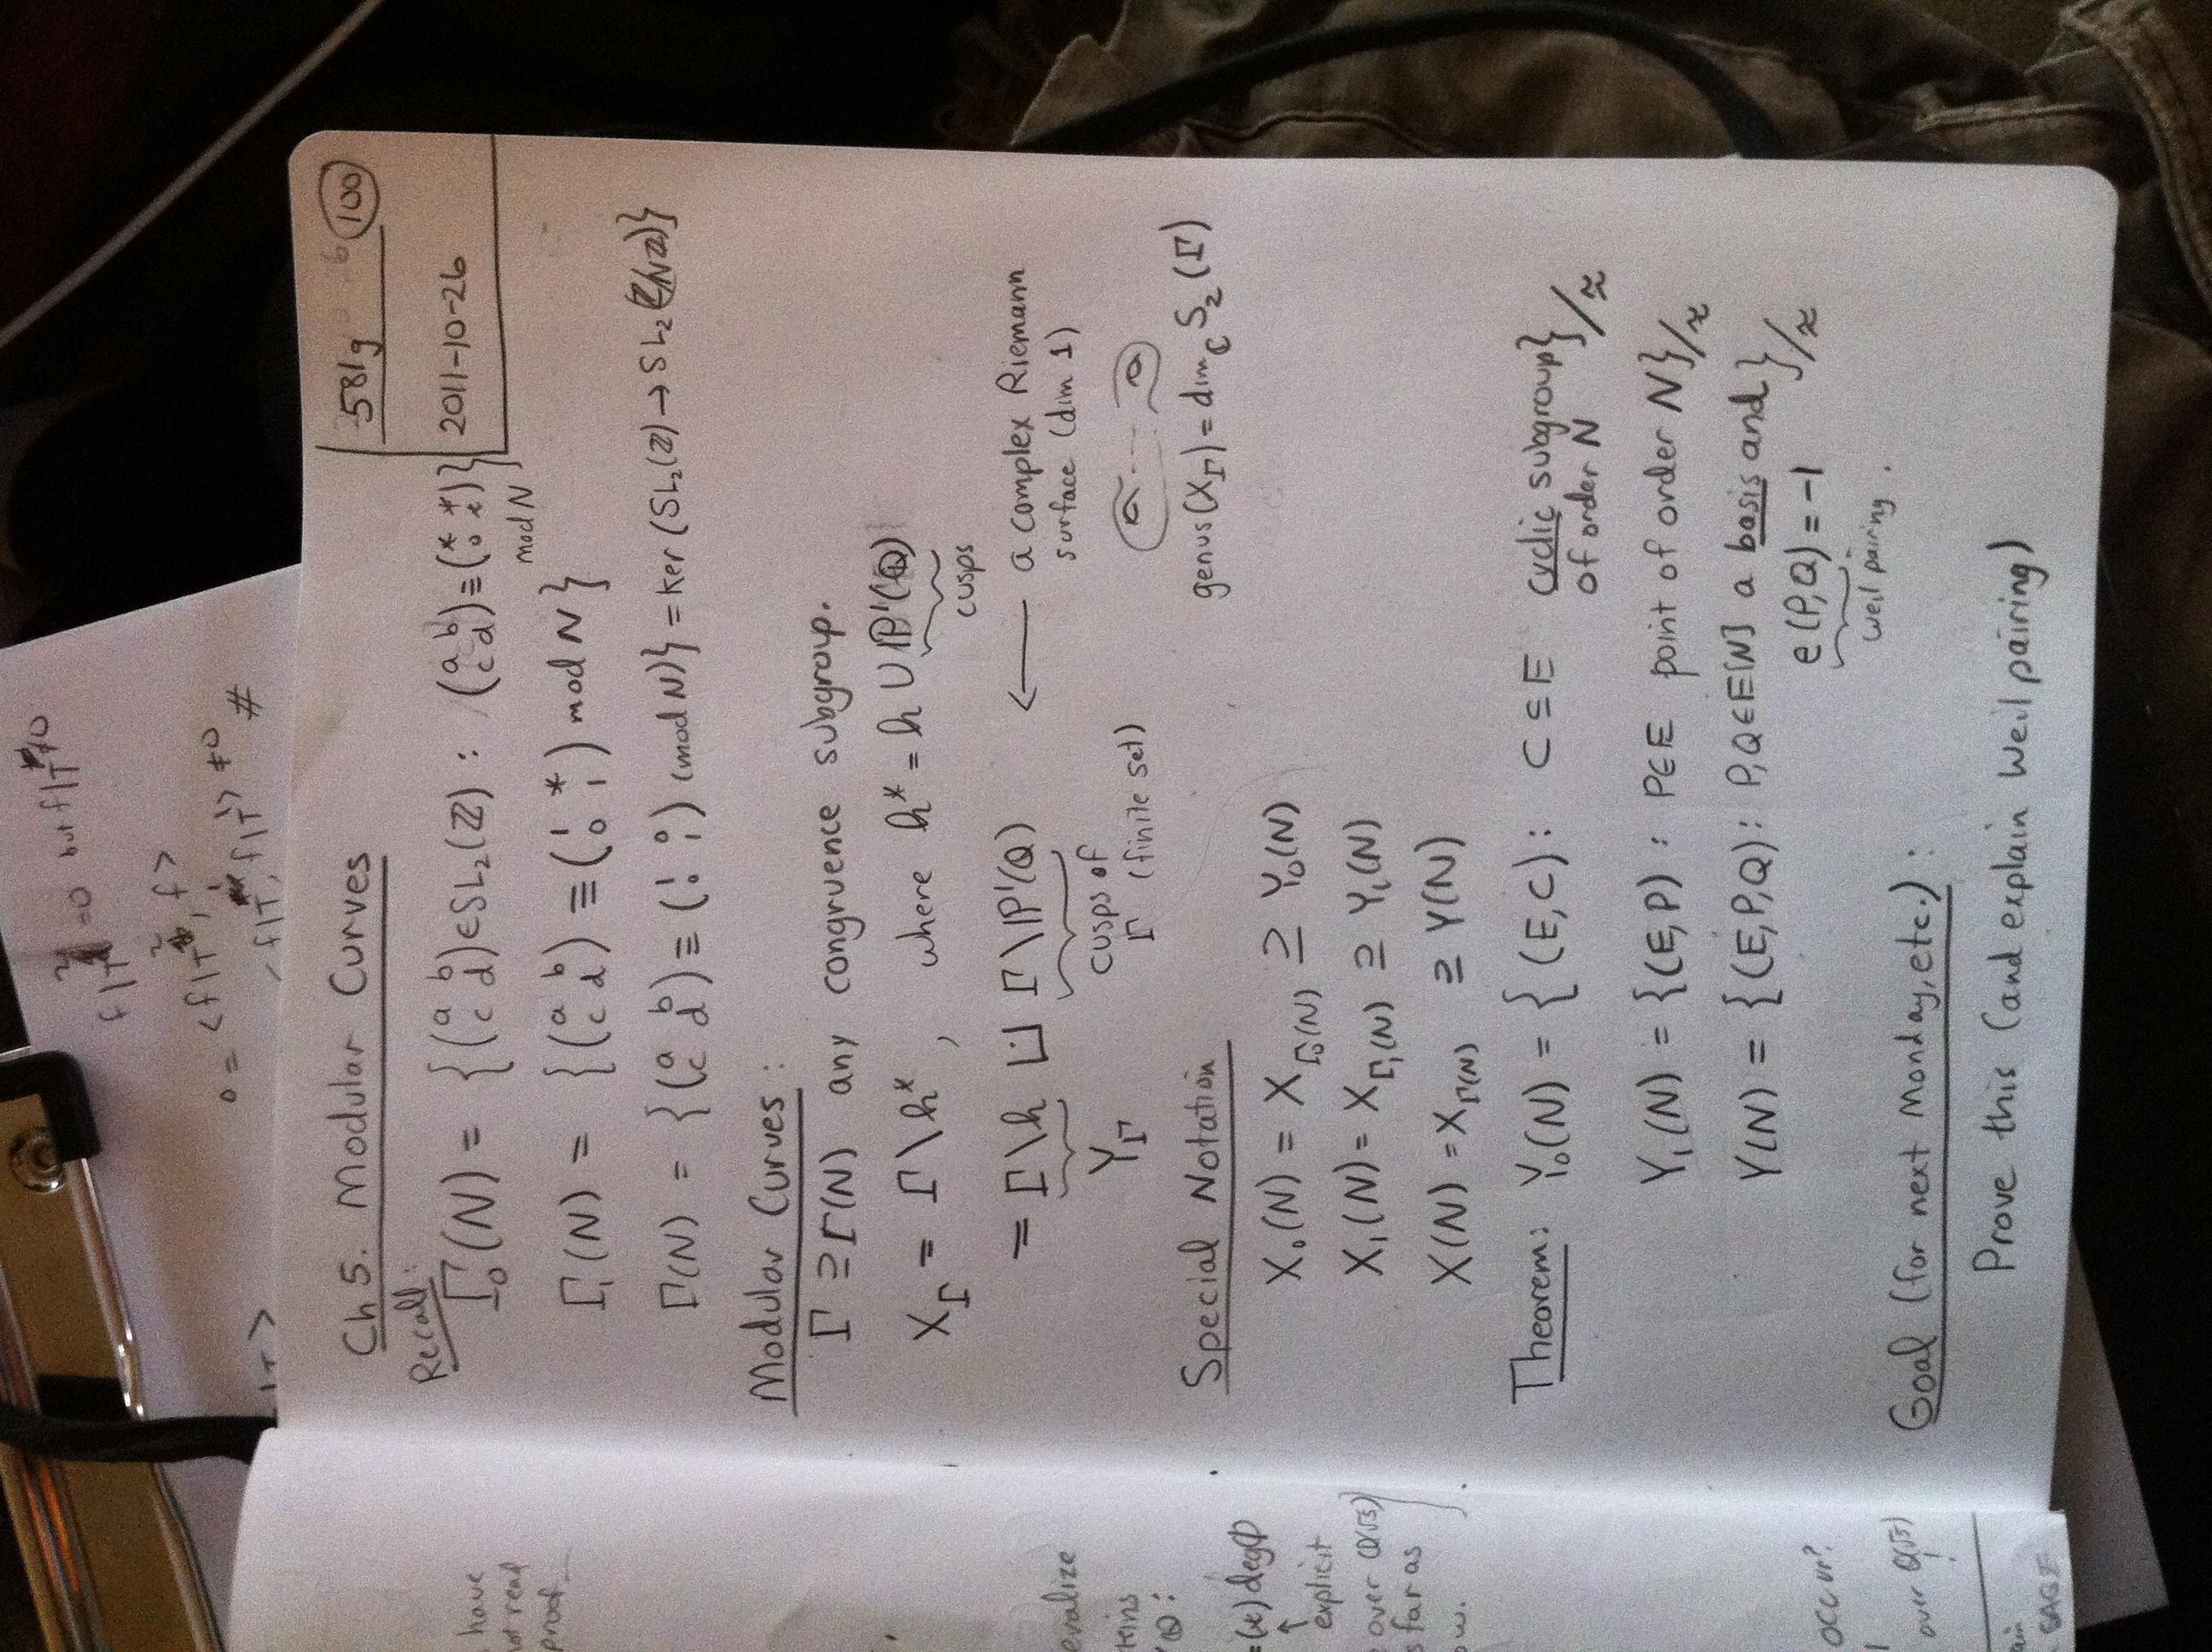 581g 6 (100)
2011-10-26
Ch 5. Modular Curves
Recall:
Γ₀(N) = {(a b; c d) ∈ SL₂(ℤ) : (a b; c d) ≡ (* *; 0 *) mod N}
Γ₁(N) = {(a b; c d) ≡ (1 *; 0 1) mod N}
Γ(N) = {(a b; c d) ≡ (1 0; 0 1) (mod N)} = ker(SL₂(ℤ) → SL₂(ℤ/Nℤ))}
Modular Curves:
Γ ⊇ Γ(N) any congruence subgroup.
X_Γ = Γ\h*, where h* = h ∪ ℙ¹(ℚ)
cusps
= Γ\h ⊔ Γ\ℙ¹(ℚ) ← a complex Riemann
surface (dim 1)
Y_Γ
cusps of
Γ (finite set)
genus(X_Γ) = dim_ℂ S₂(Γ)
Special Notation
X₀(N) = X_Γ₀(N) ⊇ Y₀(N)
X₁(N) = X_Γ₁(N) ⊇ Y₁(N)
X(N) = X_Γ(N) ⊇ Y(N)
Theorem: Y₀(N) = {(E,C): C ⊆ E cyclic subgroup}/≈
of order N
Y₁(N) = {(E,P) : P∈E point of order N}/≈
Y(N) = {(E,P,Q): P,Q∈E[N] a basis and}/≈
e(P,Q) = -1
weil pairing.
Goal (for next monday, etc.):
Prove this (and explain Weil pairing)
=0 but f|T ≠0
f|T
0 = <f|T², f>
<f|T, f|T> ≠0 #
|T>
have
not read
proof
eralize
= (*) deg φ
explicit
over Q(√5)
s far as
ow.
occur?
over Q(√5)
SAGE